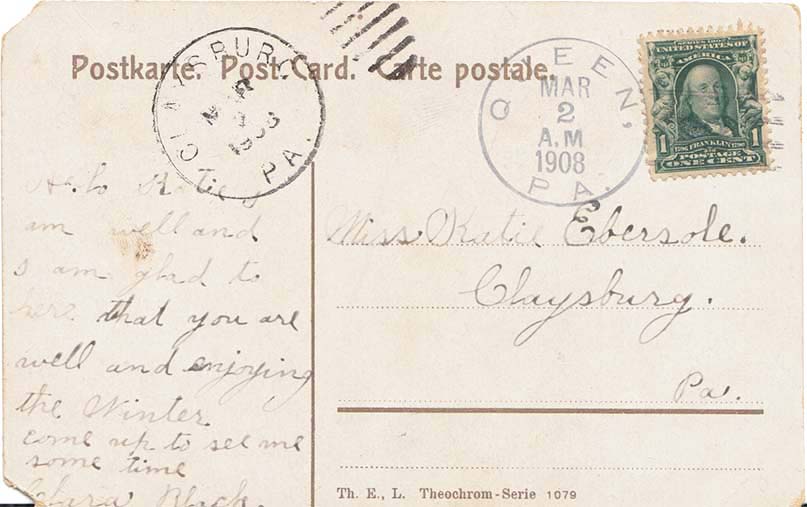 Postkarte. Post Card. Carte postale.
CLAYSBURG
MAR
1908
PA.
QUEEN,
MAR
2
A.M
1908
PA.
SERIES 1902
UNITED STATES OF
AMERICA
1 FRANKLIN 1
POSTAGE
ONE CENT
Hello Katie
am well and
am glad to
here that you are
well and enjoying
the Winter
come up to see me
some time
Clara Black.
Miss Katie Ebersole.
Claysburg.
Pa.
Th. E., L. Theochrom-Serie 1079